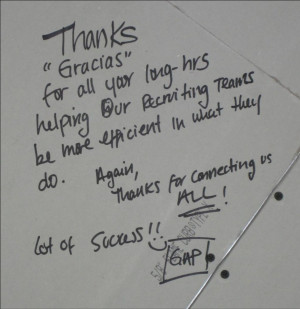 Thanks
"Gracias"
for all your long-hrs
helping Our Recruiting Teams
be more efficient in what they
do. Again,
Thanks for connecting us
ALL!
Lot of Success!!
GAP